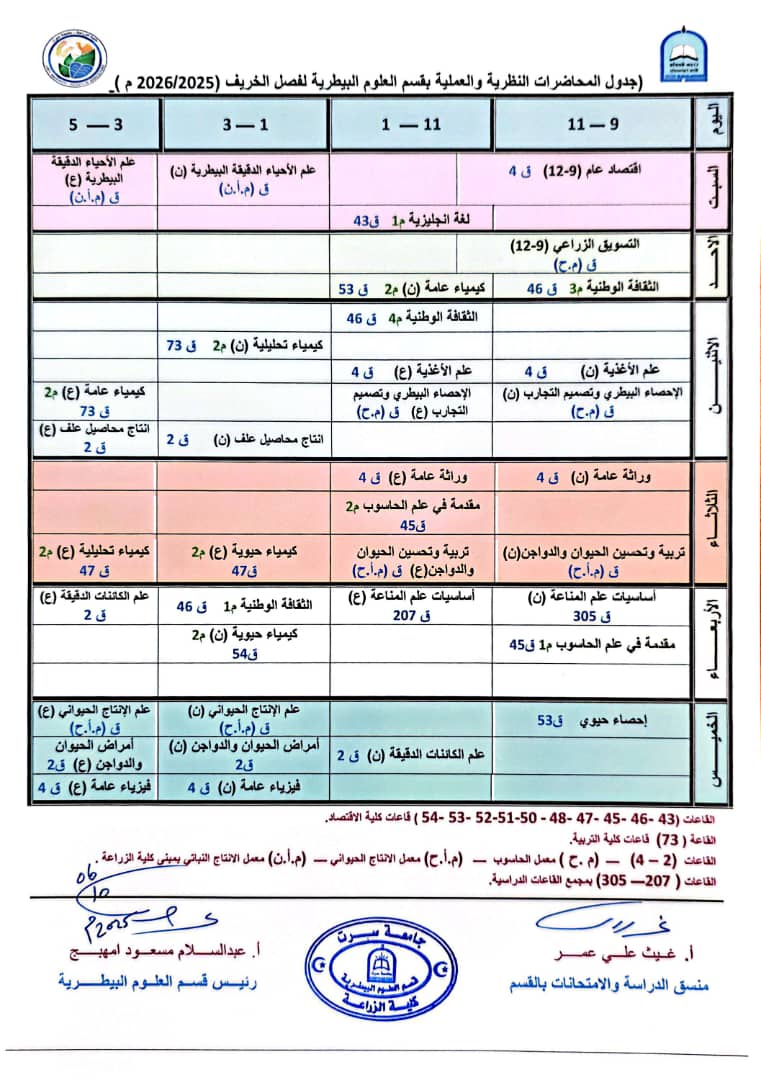 (جدول المحاضرات النظرية والعملية بقسم العلوم البيطرية لفصل الخريف (2026/2025 م )_
اليوم
9 — 11
11 — 1
1 — 3
3 — 5
السبت
اقتصاد عام (9-12) ق 4
علم الأحياء الدقيقة البيطرية (ن)
ق (م.أ.ن)
علم الأحياء الدقيقة
البيطرية (ع)
ق (م.أ.ن)
لغة انجليزية م1 ق43
الاحد
التسويق الزراعي (9-12)
ق (م.ح)
الثقافة الوطنية م3 ق 46
كيمياء عامة (ن) م2 ق 53
الاثنين
الثقافة الوطنية م4 ق 46
كيمياء تحليلية (ن) م2 ق 73
علم الأغذية (ن) ق 4
علم الأغذية (ع) ق 4
الإحصاء البيطري وتصميم التجارب (ن)
ق (م.ح)
الإحصاء البيطري وتصميم
التجارب (ع) ق (م.ح)
كيمياء عامة (ع) م2
ق 73
انتاج محاصيل علف (ن) ق 2
انتاج محاصيل علف (ع)
ق 2
الثلاثاء
وراثة عامة (ن) ق 4
وراثة عامة (ع) ق 4
مقدمة في علم الحاسوب م2
ق45
تربية وتحسين الحيوان والدواجن(ن)
ق (م.أ.ح)
تربية وتحسين الحيوان
والدواجن(ع) ق (م.أ.ح)
كيمياء حيوية (ع) م2
ق47
كيمياء تحليلية (ع) م2
ق 47
الأربعاء
أساسيات علم المناعة (ن)
ق 305
أساسيات علم المناعة (ع)
ق 207
الثقافة الوطنية م1 ق 46
علم الكائنات الدقيقة (ع)
ق 2
مقدمة في علم الحاسوب م1 ق45
كيمياء حيوية (ن) م2
ق54
الخميس
إحصاء حيوي ق53
علم الإنتاج الحيواني (ن)
ق (م.أ.ح)
علم الإنتاج الحيواني (ع)
ق (م.أ.ح)
علم الكائنات الدقيقة (ن) ق 2
أمراض الحيوان والدواجن (ن)
ق2
أمراض الحيوان
والدواجن (ع) ق2
فيزياء عامة (ن) ق 4
فيزياء عامة (ع) ق 4
القاعات (43 -46 -45 -47 -48 - 50-51-52 -53 -54 ) قاعات كلية الاقتصاد.
القاعة (73) قاعات كلية التربية.
القاعات (2 – 4) — (م.ح ) معمل الحاسوب — (م.أ.ح) معمل الانتاج الحيواني — (م.أ.ن) معمل الانتاج النباتي بمبنى كلية الزراعة .
القاعات ( 207— 305) بمجمع القاعات الدراسية.
06
10
2025م
أ. غيث علي عمر
منسق الدراسة والامتحانات بالقسم
جامعة سرت
قسم العلوم البيطرية
كلية الزراعة
أ. عبدالسلام مسعود امهبج
رئيس قسم العلوم البيطرية